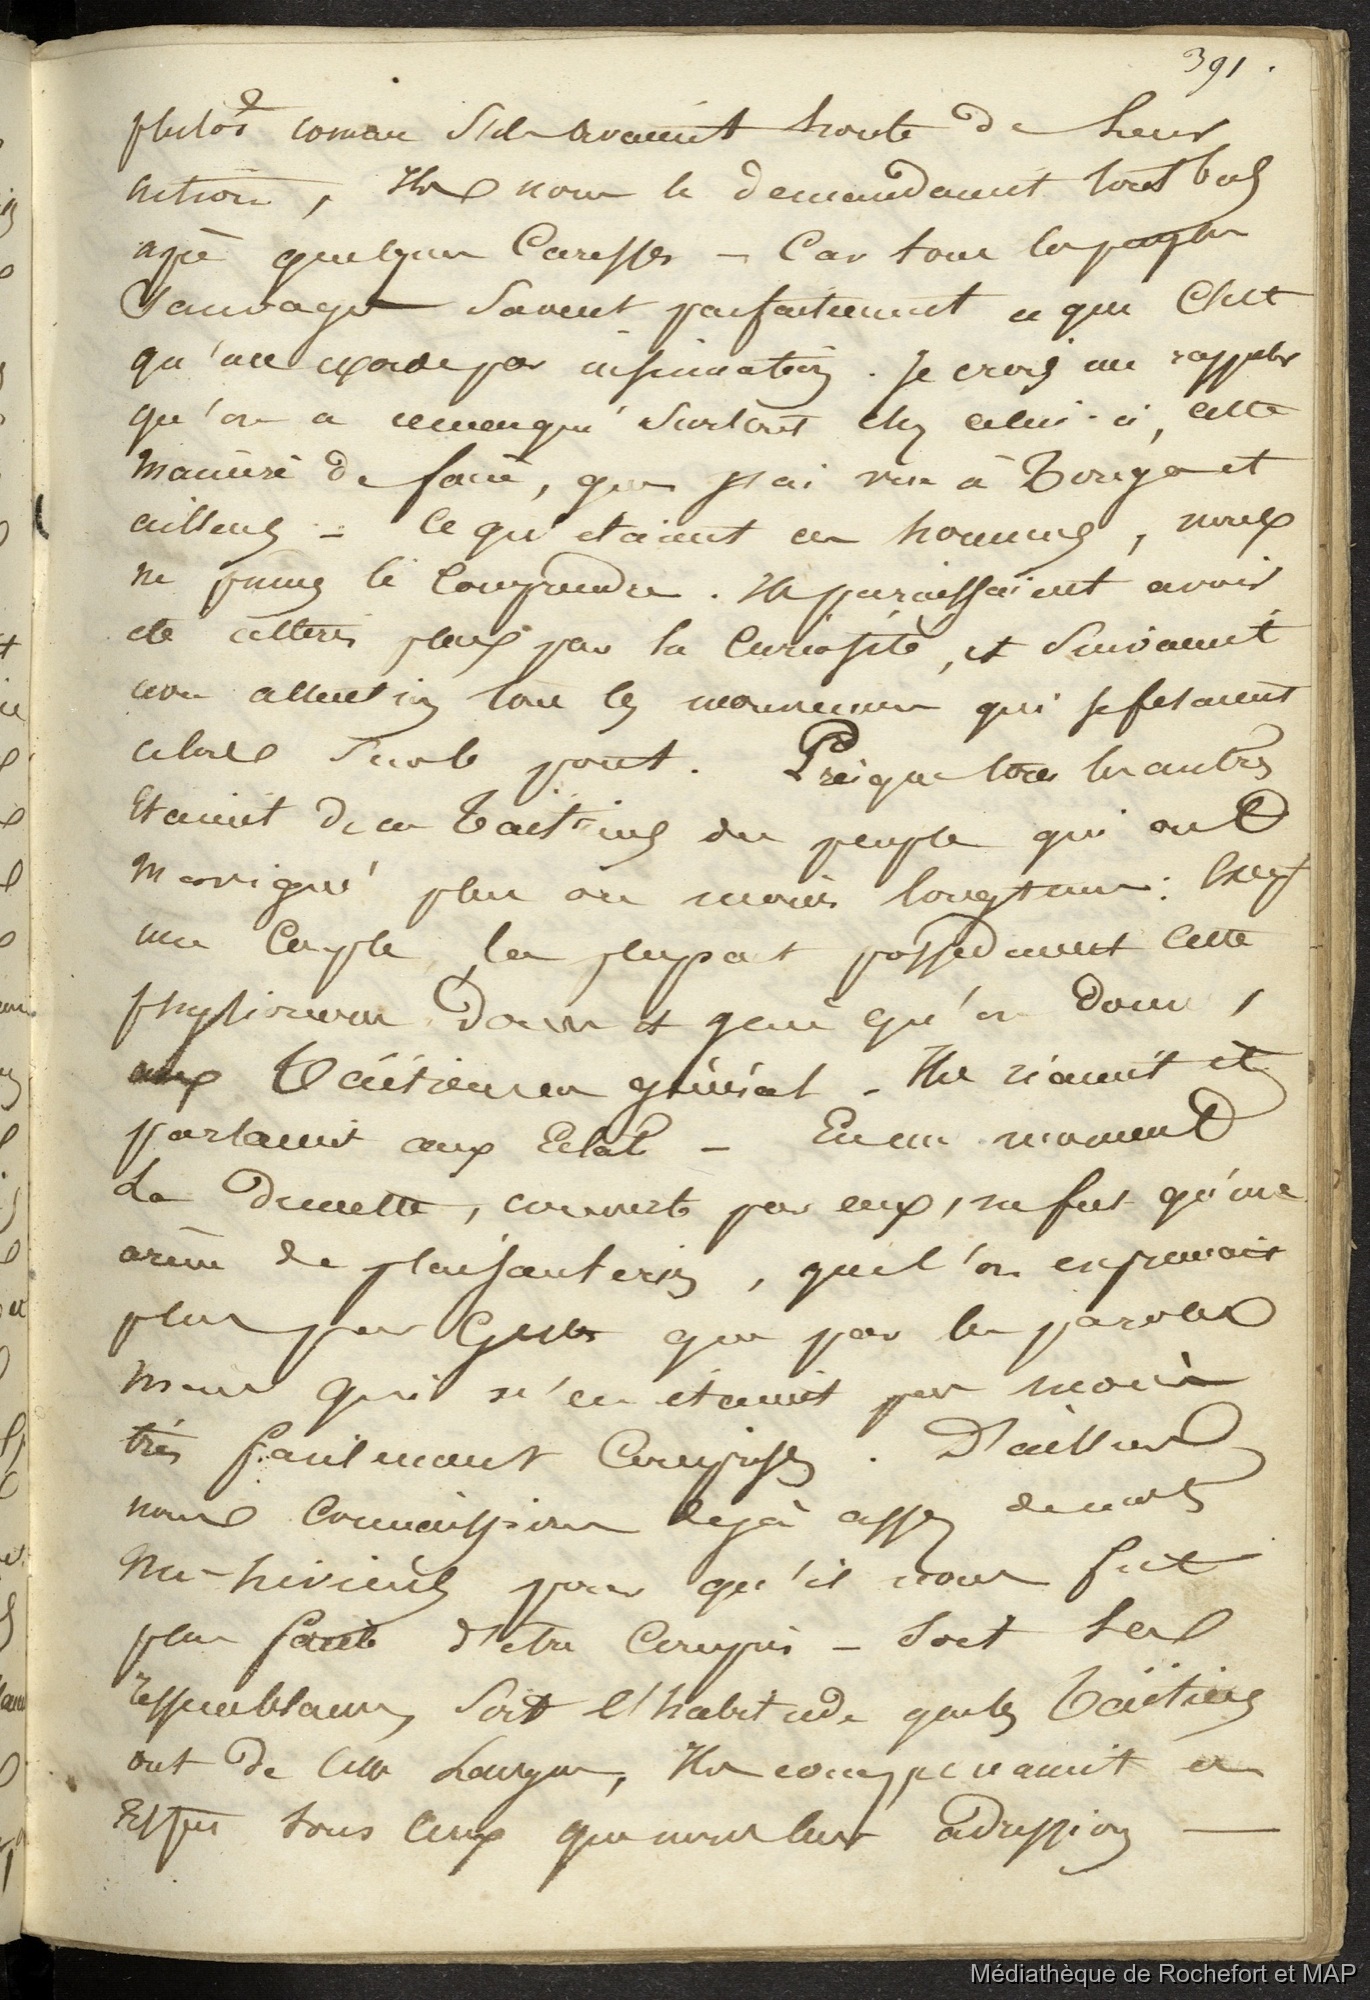 391.
plutôt comme s'ils avaient honte de leur
action, Ils nous le demandaient tout bas
après quelques Caresses - Car tous les peuples
Sauvages Savent parfaitement ce que C'est
qu'un exorde par insinuation. Je crois me rappeler
qu'on a remarqué Surtout chez celui-ci, cette
manière de faire, que j'ai vue à Tonga et
ailleurs - Ce qu'étaient ces hommes, nous
ne pumes le Comprendre. Ils paraissaient avoir
été attirés plus par la Curiosité, et Suivaient
avec attention tous les mouvemens qui se fesaient
alors Sur le pont. Presque tous les autres
Etaient de ces Taïtiens du peuple qui ont
navigué plus ou moins longtems: Excepté
un Couple, la plupart possédaient cette
physionomie douce et gaie qu'on donne,
aux Taïtiens en général - Ils riaient et
parlaient aux Eclats - En un moment
La Dunette, couverte par eux, ne fut qu'une
arène de plaisanteries, que l'on exprimait
plus par Gestes que par les paroles
mais qui n'en étaient pas moins
très facilement Comprises. D'ailleurs
nous Connaissions déjà assez de mots
Nu-hiviens pour qu'il nous fut
plus facile d'être Compris - Soit les
ressemblances, Soit l'habitude que les Taïtiens
ont de cette Langue, Ils comprenaient en
Effet tous ceux que nous leur adressions —
Médiathèque de Rochefort et MAP